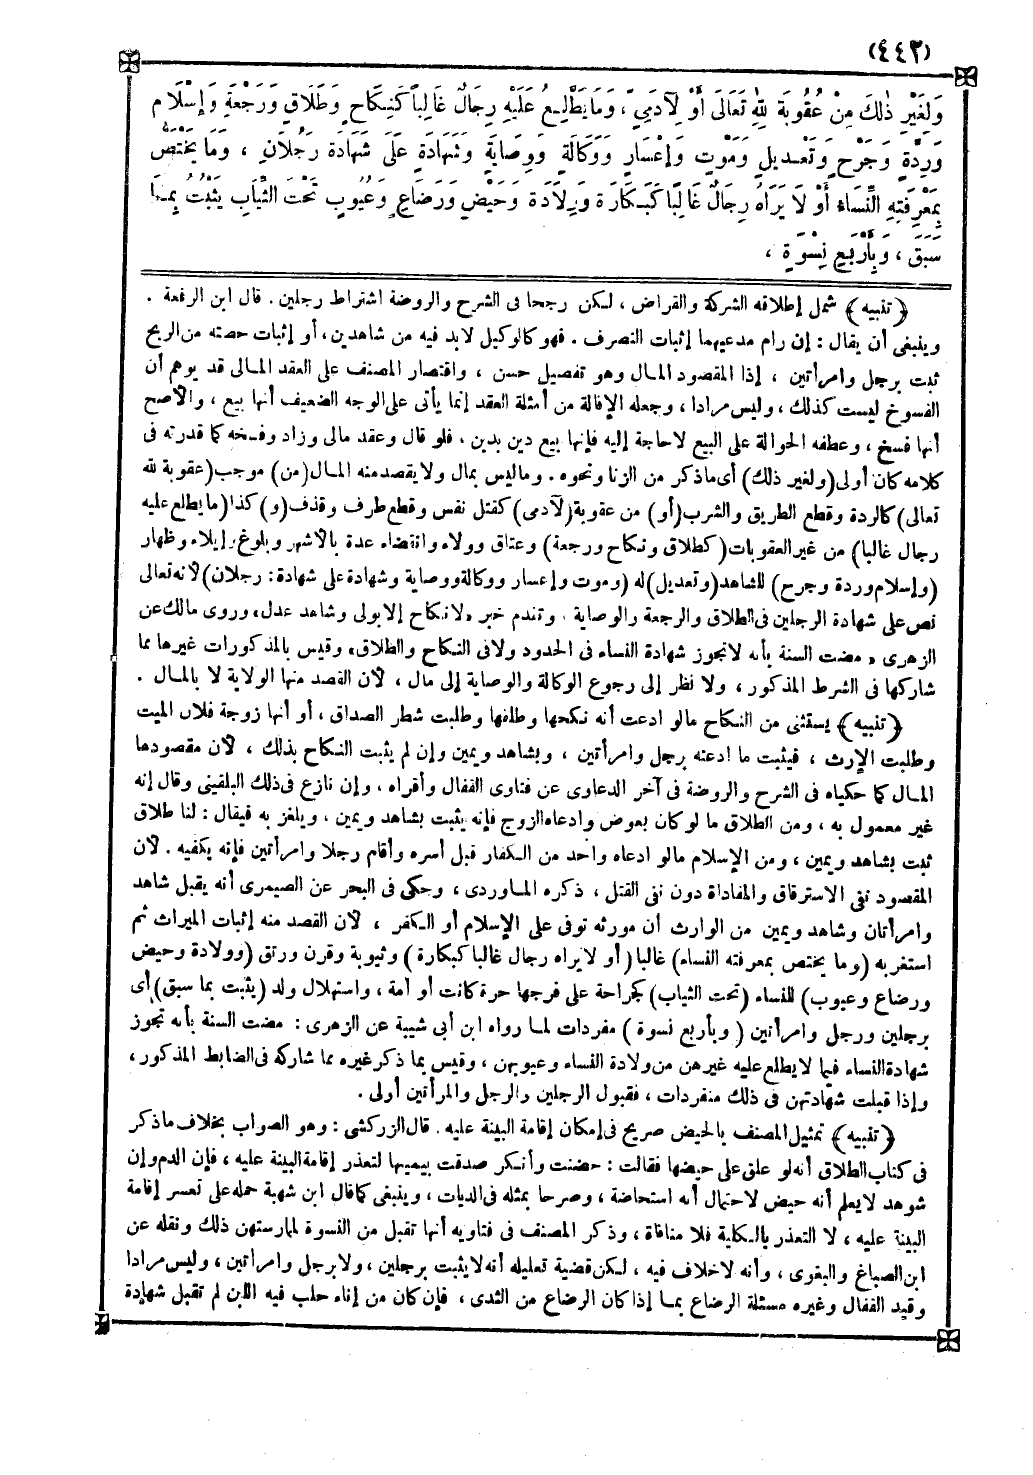 (٤٤٢)
وَلِغَيْرِ ذٰلِكَ مِنْ عُقُوبَةٍ لِلّٰهِ تَعَالَى أَوْ لِآدَمِيٍّ ، وَمَا يَطَّلِعُ عَلَيْهِ رِجَالٌ غَالِبًا كَنِكَاحٍ وَطَلَاقٍ وَرَجْعَةٍ وَإِسْلَامٍ
وَرِدَّةٍ وَجَرْحٍ وَتَعْدِيلٍ وَمَوْتٍ وَإِعْسَارٍ وَوَكَالَةٍ وَوِصَايَةٍ وَشَهَادَةٍ عَلَى شَهَادَةٍ رَجُلَانِ ، وَمَا يَخْتَصُّ
بِمَعْرِفَتِهِ النِّسَاءُ أَوْ لَا يَرَاهُ رِجَالٌ غَالِبًا كَبَكَارَةٍ وَوِلَادَةٍ وَحَيْضٍ وَرَضَاعٍ وَعُيُوبٍ تَحْتَ الثِّيَابِ يَثْبُتُ بِمَا
سَبَقَ ، وَبِأَرْبَعِ نِسْوَةٍ ،
(تنبيه) شمل إطلاقه الشركة والقراض ، لكن رجحا فى الشرح والروضة اشتراط رجلين . قال ابن الرفعة .
وينبغى أن يقال : إن رام مدعيهما إثبات التصرف . فهو كالوكيل لابد فيه من شاهدين ، أو إثبات حصته من الربح
ثبت برجل وامرأتين ، إذا المقصود المال وهو تفصيل حسن ، واقتصار المصنف على العقد المالى قد يوهم أن
الفسوخ ليست كذلك ، وليس مرادا ، وجعله الإقالة من أمثلة العقد إنما يأتى على الوجه الضعيف أنها بيع ، والأصح
أنها فسخ ، وعطفه الحوالة على البيع لاحاجة إليه فإنها بيع دين بدين ، فلو قال وعقد مالى وزاد وفسخه كما قدرته فى
كلامه كان أولى (ولغير ذلك) أى ماذكر من الزنا ونحوه . وما ليس بمال ولا يقصد منه المال (من) موجب (عقوبة لله
تعالى) كالردة وقطع الطريق والشرب (أو) من عقوبة (لآدمى) كقتل نفس وقطع طرف وقذف (و) كذا (ما يطلع عليه
رجال غالبا) من غير العقوبات (كطلاق ونكاح ورجعة) وعتاق وولاء وانقضاء عدة بالأشهر وبلوغ وإيلاء وظهار
(وإسلام وردة وجرح) للشاهد (وتعديل) له (وموت وإعسار ووكالة ووصاية وشهادة على شهادة : رجلان) لأنه تعالى
نص على شهادة الرجلين فى الطلاق والرجعة والوصاية . وتقدم خبر « لانكاح إلا بولى وشاهد عدل ، وروى مالك عن
الزهرى « مضت السنة بأنه لاتجوز شهادة النساء فى الحدود ولا فى النكاح والطلاق ، وقيس بالمذكورات غيرها مما
شاركها فى الشرط المذكور ، ولا نظر إلى رجوع الوكالة والوصاية إلى مال ، لأن القصد منها الولاية لا بالمال .
(تنبيه) يستثنى من النكاح مالو ادعت أنه نكحها وطلقها وطلبت شطر الصداق ، أو أنها زوجة فلان الميت
وطلبت الإرث ، فيثبت ما ادعته برجل وامرأتين ، وبشاهد ويمين وإن لم يثبت النكاح بذلك ، لأن مقصودها
المال كما حكياه فى الشرح والروضة فى آخر الدعاوى عن فتاوى القفال وأقراه ، وإن نازع فى ذلك البلقينى وقال إنه
غير معمول به ، ومن الطلاق ما لو كان بعوض وادعاه الزوج فإنه يثبت بشاهد ويمين ، ويلغز به فيقال : لنا طلاق
ثبت بشاهد ويمين ، ومن الإسلام مالو ادعاه واحد من الكفار قبل أسره وأقام رجلا وامرأتين فإنه يكفيه . لأن
المقصود نفى الاسترقاق والمفاداة دون نفى القتل ، ذكره الماوردى ، وحكى فى البحر عن الصيمرى أنه يقبل شاهد
وامرأتان وشاهد ويمين من الوارث أن مورثه توفى على الإسلام أو الكفر ، لأن القصد منه إثبات الميراث ثم
استغربه (وما يختص بمعرفته النساء) غالبا (أو لا يراه رجال غالبا كبكارة) وثيوبة وقرن ورتق (وولادة وحيض
ورضاع وعيوب) للنساء (تحت الثياب) كجراحة على فرجها حرة كانت أو أمة ، واستهلال ولد (يثبت بما سبق) أى
برجلين ورجل وامرأتين (وبأربع نسوة) مفردات لما رواه ابن أبى شيبة عن الزهرى : مضت السنة بأنه تجوز
شهادة النساء فيما لا يطلع عليه غيرهن من ولادة النساء وعيوبهن ، وقيس بما ذكر غيره مما شاركه فى الضابط المذكور ،
وإذا قبلت شهادتهن فى ذلك منفردات ، فقبول الرجلين والرجل والمرأتين أولى .
(تنبيه) تمثيل المصنف بالحيض صريح فى إمكان إقامة البينة عليه . قال الزركشى : وهو الصواب بخلاف ماذكر
فى كتاب الطلاق أنه لو علق على حيضها فقالت : حضت وأنكر صدقت بيمينها لتعذر إقامة البينة عليه ، فإن الدم وإن
شوهد لا يعلم أنه حيض لاحتمال أنه استحاضة ، وصرحا بمثله فى الديات ، وينبغى كما قال ابن شهبة حمله على تعسر إقامة
البينة عليه ، لا التعذر بالكلية فلا منافاة ، وذكر المصنف فى فتاويه أنها تقبل من النسوة لممارستهن ذلك ونقله عن
ابن الصباغ والبغوى ، وأنه لاخلاف فيه ، لكن قضية تعليله أنه لا يثبت برجلين ، ولا برجل وامرأتين ، وليس مرادا
وقيد القفال وغيره مسئلة الرضاع بما إذا كان الرضاع من الثدى ، فإن كان من إناء حلب فيه اللبن لم تقبل شهادة